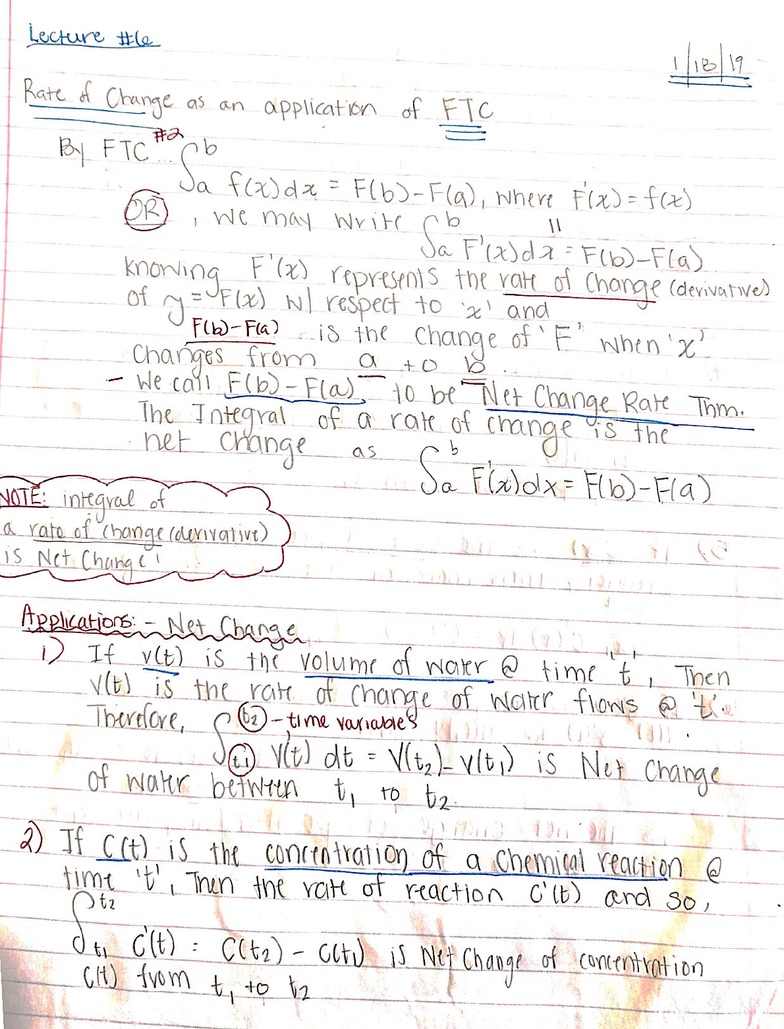 Lecture #6
1/18/19
Rate of Change as an application of FTC
By FTC #2 ∫a^b f(x)dx = F(b)-F(a), where F'(x) = f(x)
OR, we may write ∫a^b F'(x)dx = F(b)-F(a)
knowing F'(x) represents the rate of change (derivative)
of y = F(x) w/ respect to 'x' and
F(b)-F(a) is the change of 'F' when 'x'
changes from a to b.
- We call F(b)-F(a) to be Net Change Rate Thm.
The Integral of a rate of change is the
net change as ∫a^b F'(x)dx = F(b)-F(a)
NOTE: integral of
a rate of change (derivative)
is Net Change!
Applications: - Net Change
1) If v(t) is the volume of water @ time 't', Then
v'(t) is the rate of change of water flows @ 't'.
Therefore, ∫ t2 - time variables
t1 v'(t) dt = V(t2) - v(t1) is Net Change
of water between t1 to t2.
2) If C(t) is the concentration of a chemical reaction @
time 't', Then the rate of reaction C'(t) and so,
∫ t2
t1 C'(t) = C(t2) - C(t1) is Net Change of concentration
C(t) from t1 to t2